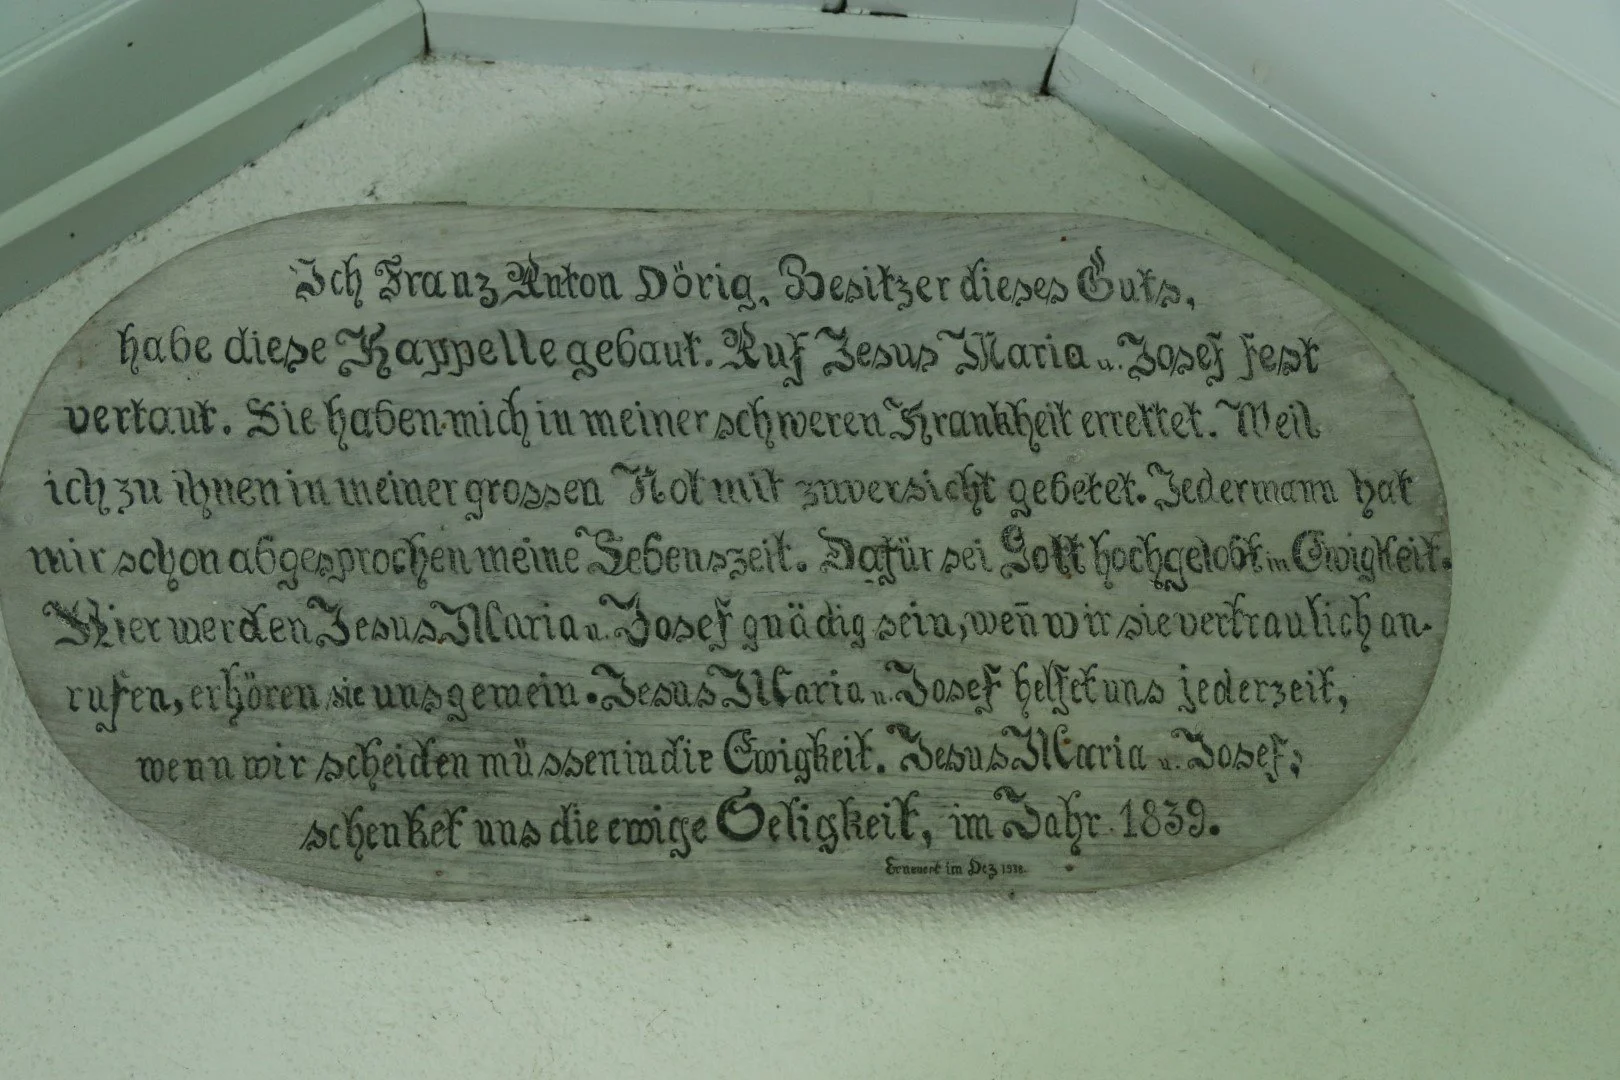 Ich Franz Anton Dörig, Besitzer dieses Guts,
habe diese Kappelle gebaut. Auf Jesus Maria u. Josef fest
vertaut. Sie haben mich in meiner schweren Krankheit errettet. Weil
ich zu ihnen in meiner grossen Not mit zuversicht gebetet. Jedermann hat
mir schon abgesprochen meine Lebenszeit. Dafür sei Gott hochgelobt in Ewigkeit.
Hier werden Jesus Maria u. Josef gnädig sein, weñ wir sie vertraulich an-
rufen, erhören sie uns gemein. Jesus Maria u. Josef helfet uns jederzeit,
wenn wir scheiden müssen in die Ewigkeit. Jesus Maria u. Josef,
schenket uns die ewige Seligkeit, im Jahr 1839.
Erneuert im Dez 1938.